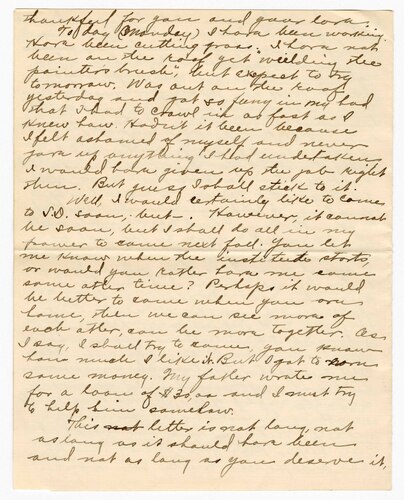 thankful for you and your love.
Today (Monday) I have been working.
Have been cutting grass. I have not
been on the roof yet wielding the
painters brush, but expect to try
tomorrow. Was out on the roof
yesterday and got so funy in my head
that I had to crawl in as fast as I
knew how. Hadn't it been because
I felt ashamed of myself and never
gave up anything I had undertaken
I would have given up the job right
then. But guess I shall stick to it.
Well, I would certainly like to come
to S.D. soon, but. However, it cannot
be soon, but I shall do all in my
power to come next fall. You let
me know when the institute starts,
or would you rather have me come
some other time? Perhaps it would
be better to come when you are
home, then we can see more of
each other, can be more together. As
I say, I shall try to come, you know
how much I like it. But I got to earn
some money. My father wrote me
for a loan of $30.00 and I must try
to help him somehow.
This letter is not long, not
as long as it should have been
and not as long as you deserve it.